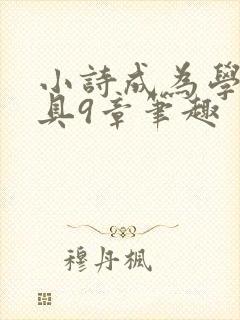 小詩成為學
具9章筆趣
穆丹楓